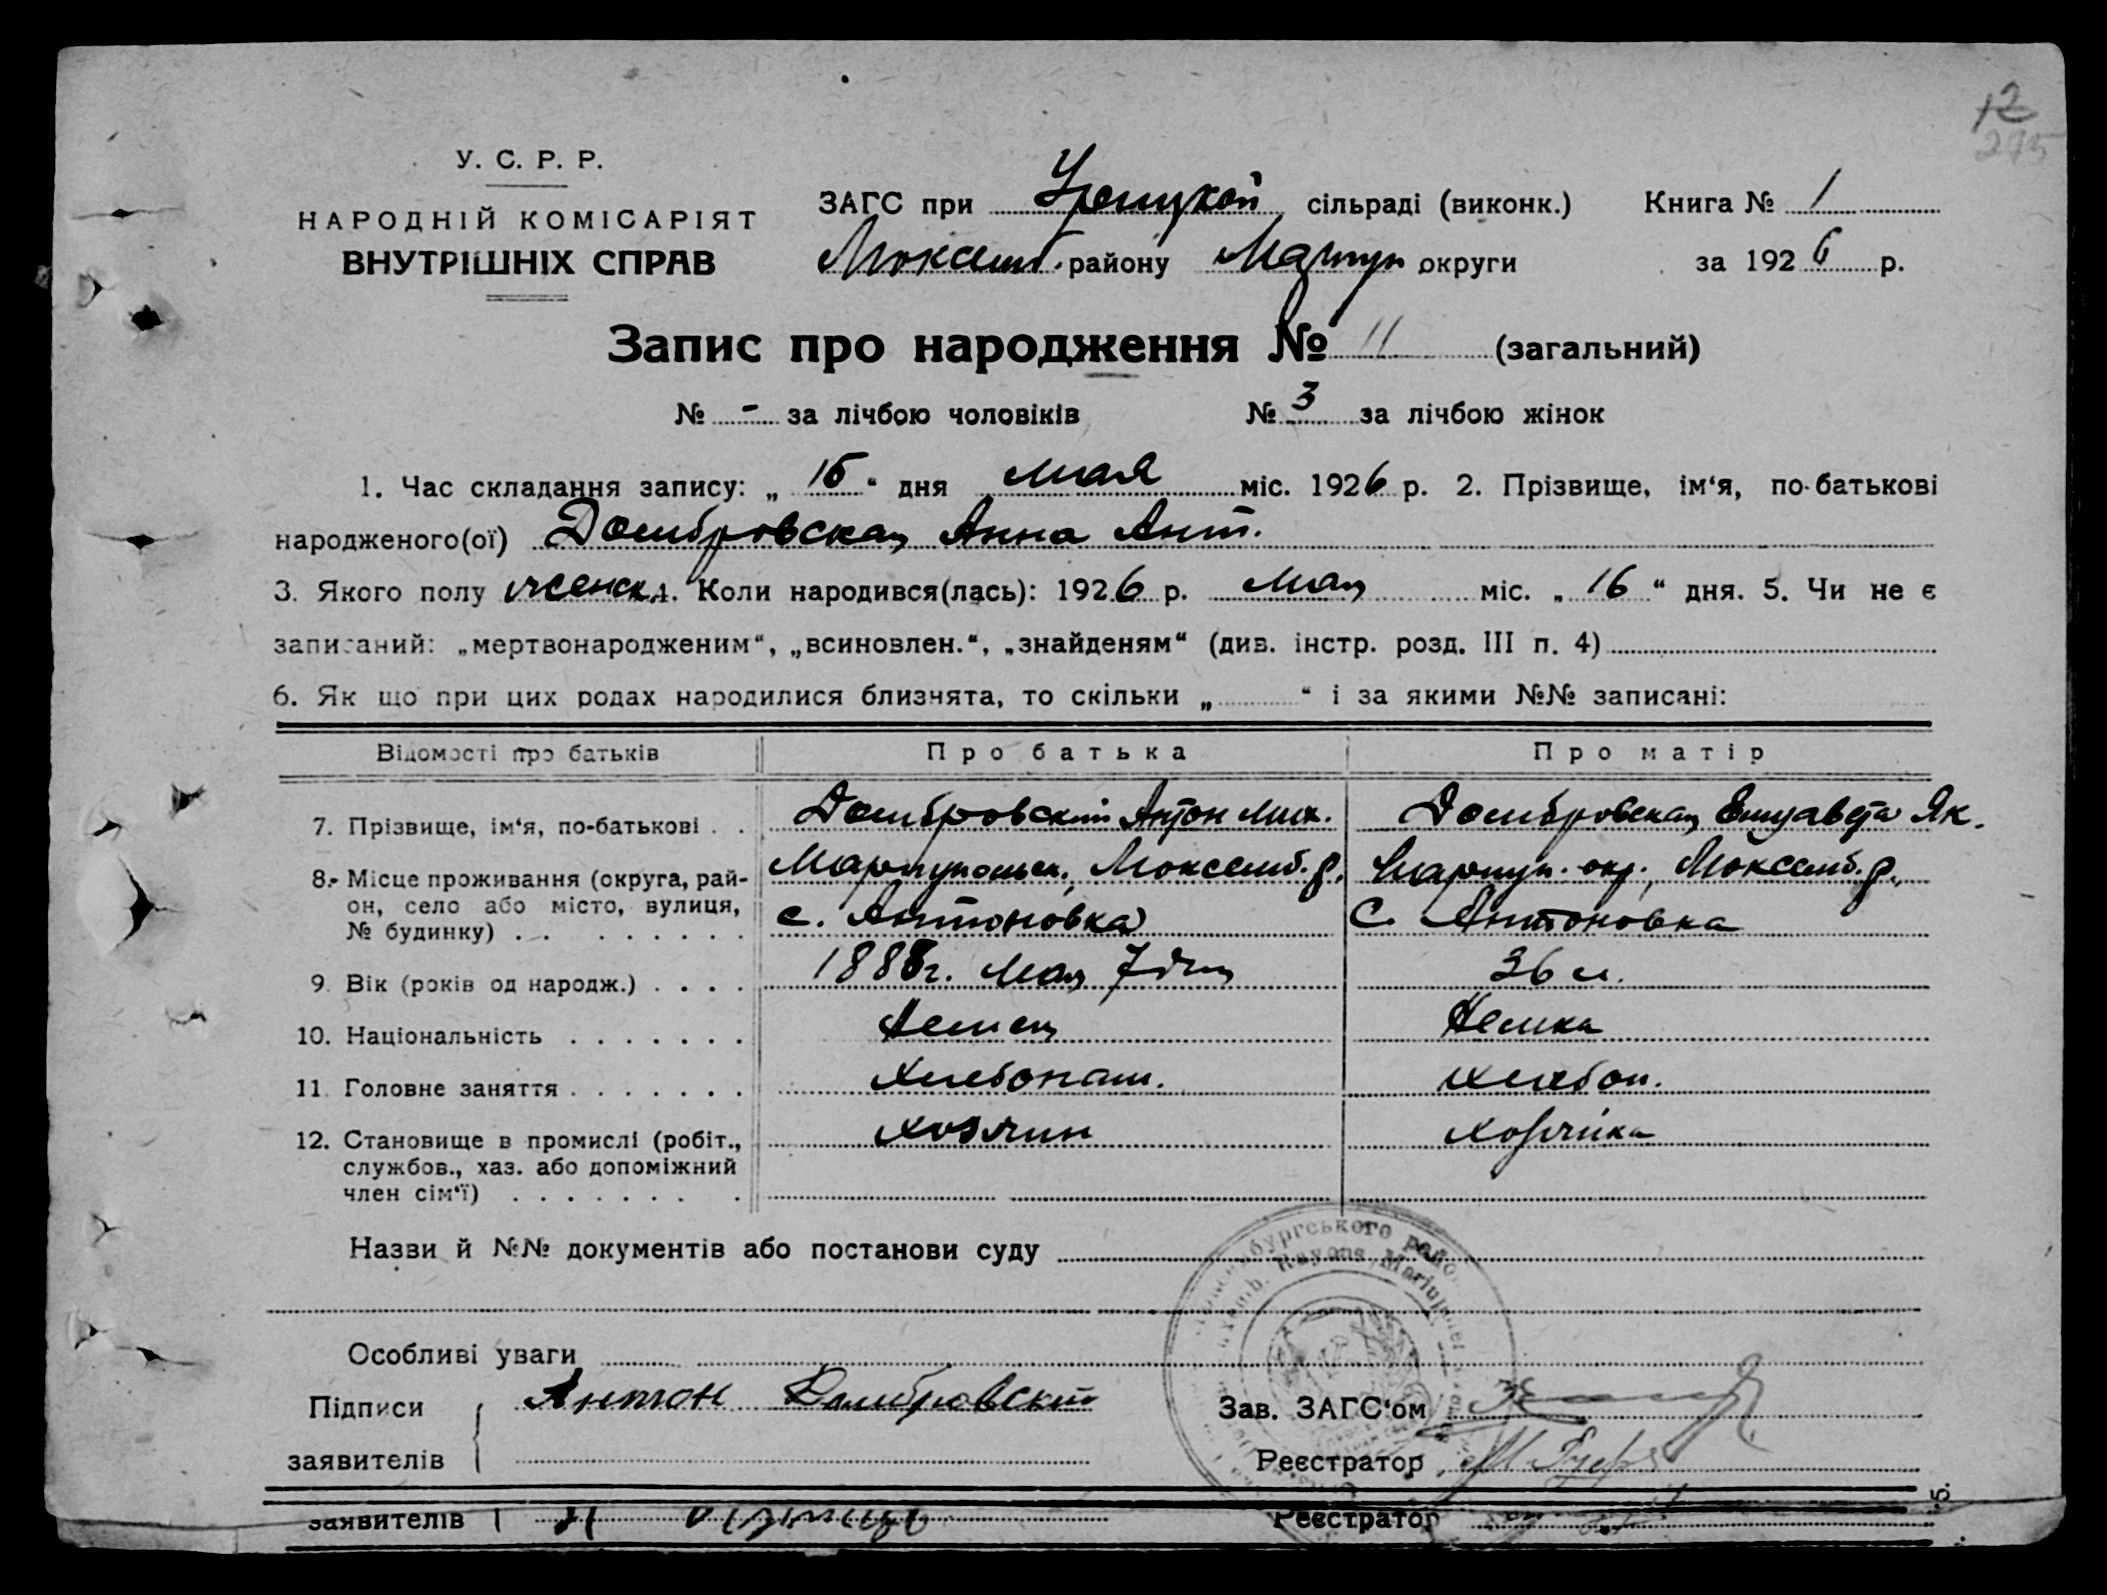 12
275
У. С. Р. Р.
НАРОДНІЙ КОМІСАРІЯТ
ВНУТРІШНІХ СПРАВ
ЗАГС при сільраді (виконк.) Книга № 1
району Мариуп округи за 1926 р.
Запис про народження № 11 (загальний)
№ - за лічбою чоловіків № 3 за лічбою жінок
1. Час складання запису: „ “ дня мая міс. 1926 р. 2. Прізвище, ім‘я, по-батькові
народженого(ої) Домбровская Анна Ант.
3. Якого полу женск. 4. Коли народився(лась): 1926 р. мая міс. „16“ дня. 5. Чи не є
записаний: „мертвонародженим“, „всиновлен.“, „знайденям“ (див. інстр. розд. III п. 4)
6. Як що при цих родах народилися близнята, то скільки „ “ і за якими №№ записані:
Відомості про батьків Про батька Про матір
7. Прізвище, ім‘я, по-батькові . . Домбровский Антон Мих. Домбровская Елизавета Як.
8. Місце проживання (округа, рай- Мариупольск., Люксемб. р. Мариуп. окр., Люксемб. р.,
он, село або місто, вулиця, с. Антоновка С. Антоновка
№ будинку) . . . . . . . . .
9. Вік (років од народж.) . . . . 1888г. Мая 7 дня 36 л.
10. Національність . . . . . . . Немец Немка
11. Головне заняття . . . . . . . Хлебопаш. Хлебоп.
12. Становище в промислі (робіт., хозяин хозяйка
службов., хаз. або допоміжний
член сім‘ї) . . . . . . . .
Назви й №№ документів або постанови суду
бургського райо
b. Rayons, Mariupoler
Особливі уваги
Підписи Антон Домбровский Зав. ЗАГС‘ом
заявителів Реєстратор
заявителів Реєстратор